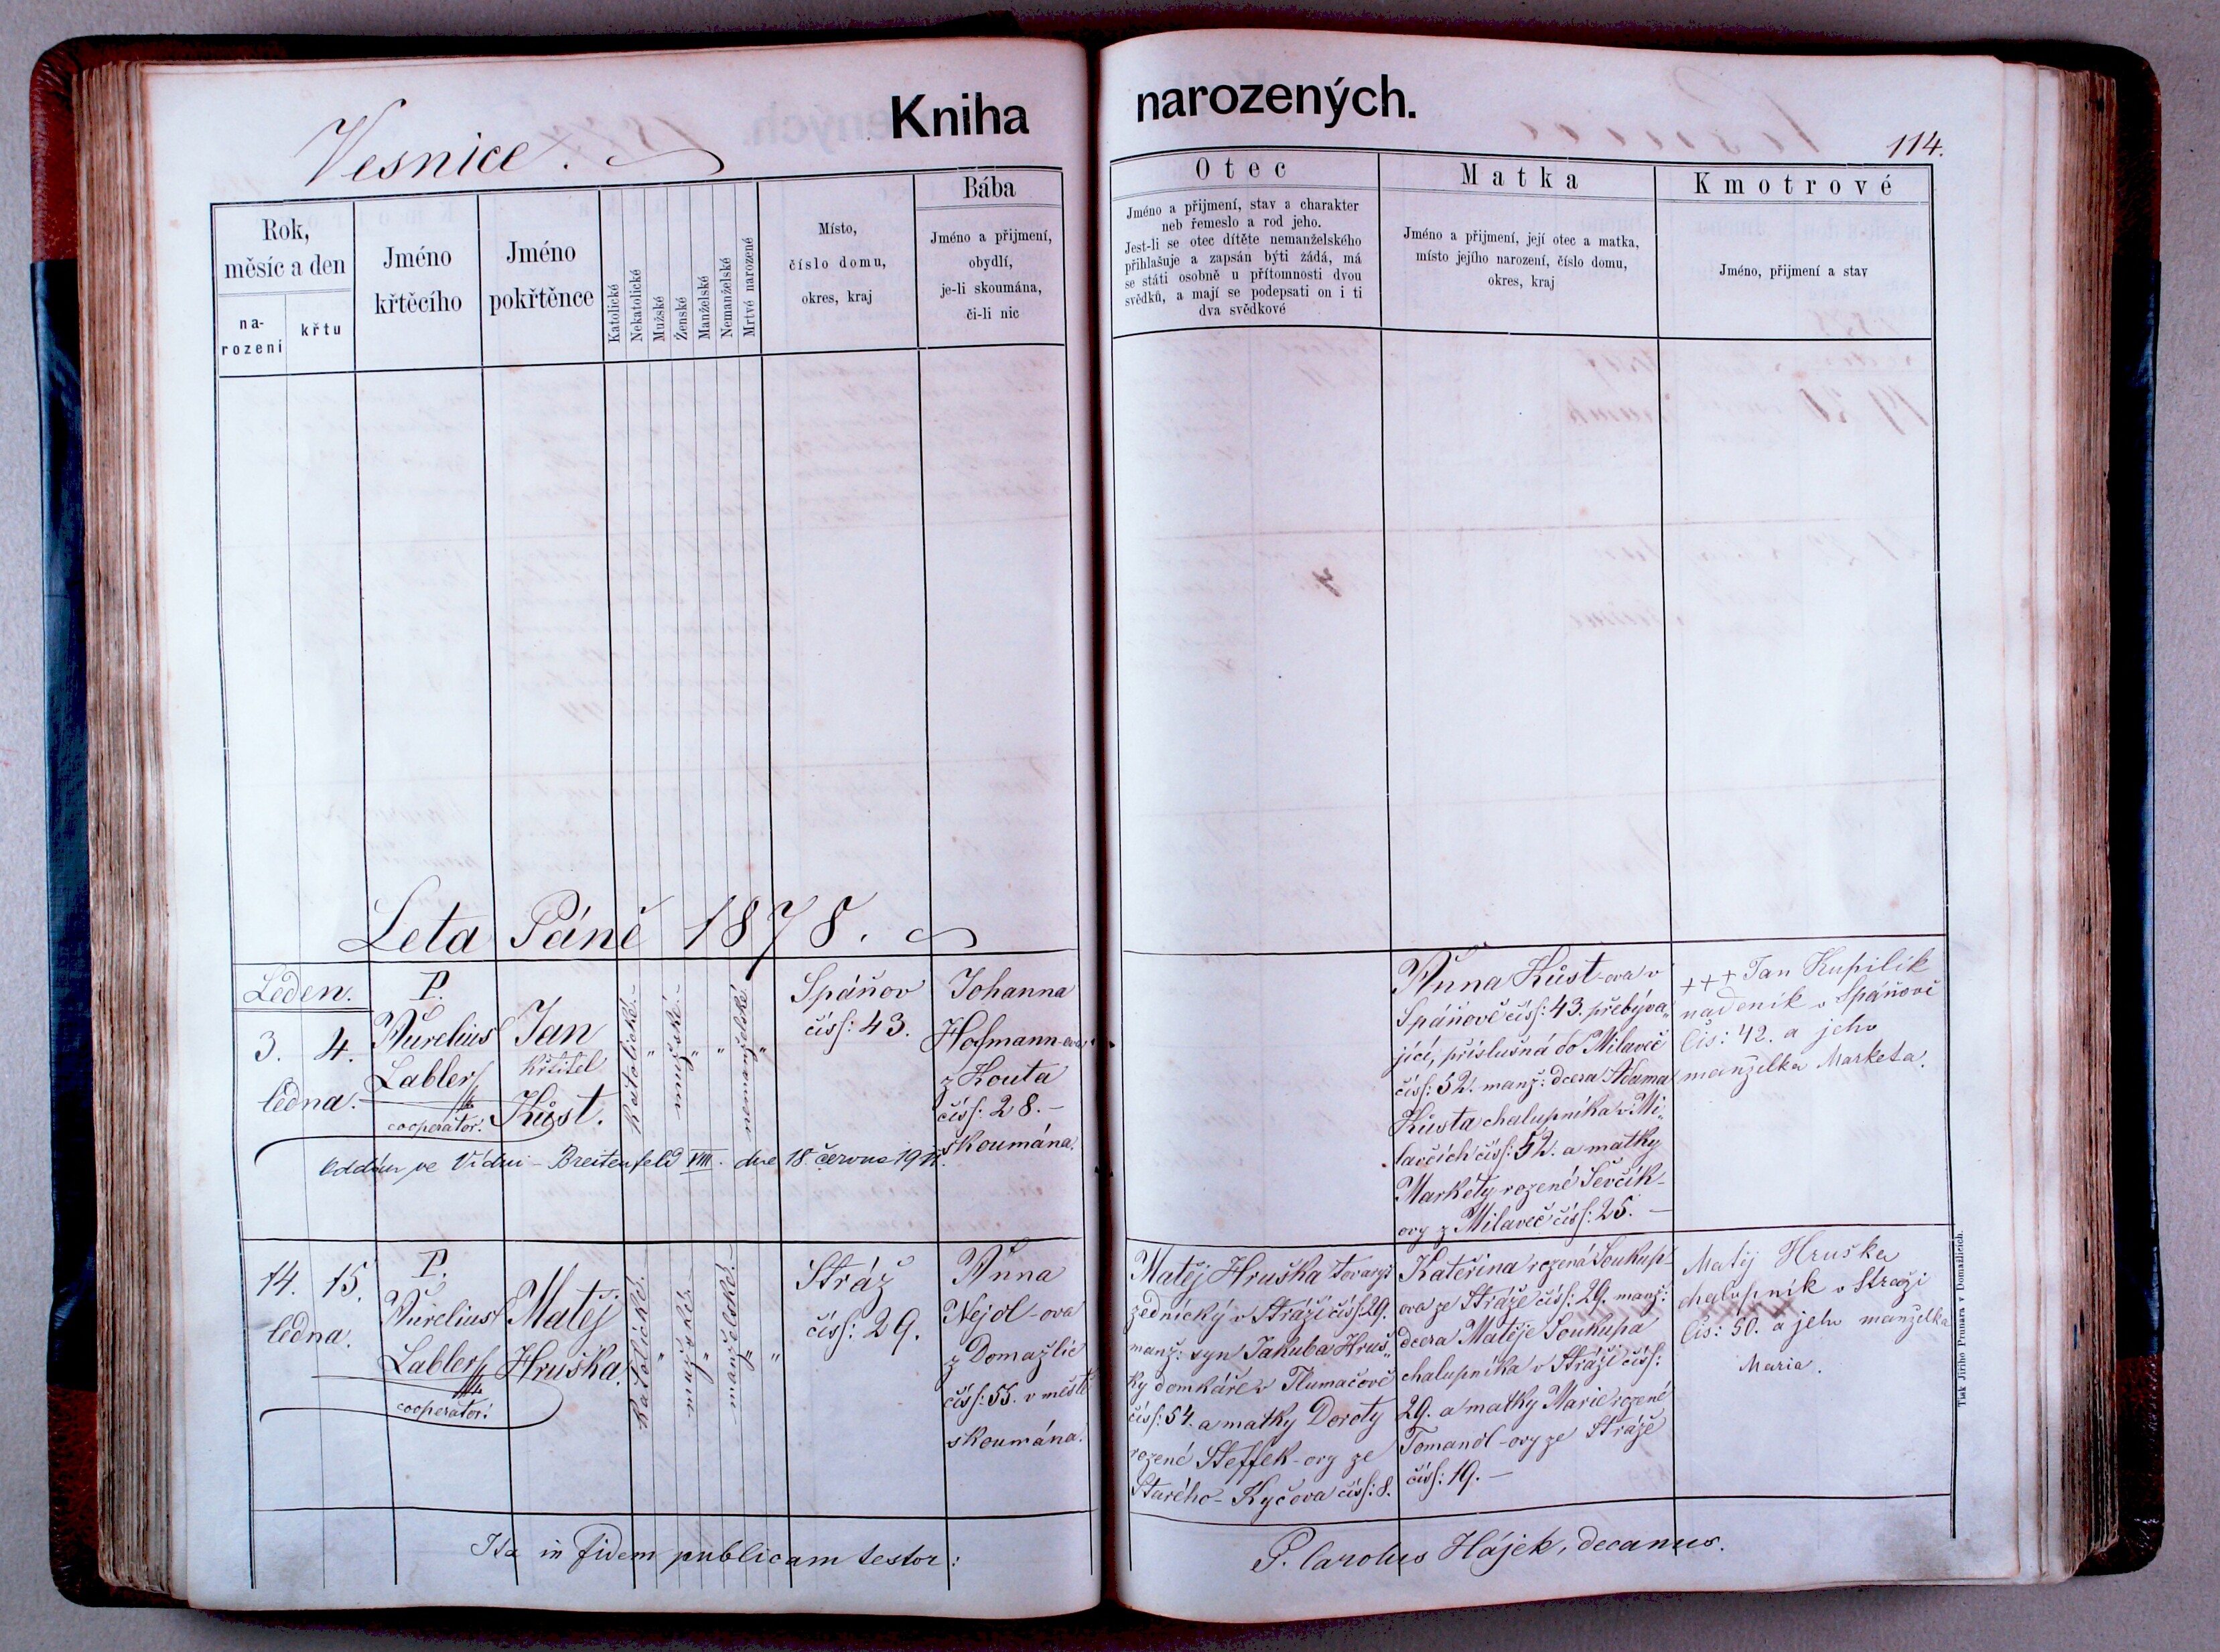 Vesnice.
Kniha narozených.
114.
Rok,
měsíc a den
na-
rození
křtu
Jméno
křtěcího
Jméno
pokřtěnce
Katolické
Nekatolické
Mužské
Ženské
Manželské
Nemanželské
Mrtvě narozené
Místo,
číslo domu,
okres, kraj
Bába
Jméno a přijmení,
obydlí,
je-li skoumána,
či-li nic
Otec
Jméno a přijmení, stav a charakter
neb řemeslo a rod jeho.
Jest-li se otec dítěte nemanželského
přihlašuje a zapsán býti žádá, má
se státi osobně u přítomnosti dvou
svědků, a mají se podepsati on i ti
dva svědkové
Matka
Jméno a přijmení, její otec a matka,
místo jejího narození, číslo domu,
okres, kraj
Kmotrové
Jméno, přijmení a stav
Leta Páně 1878.
Leden.
3. 4.
ledna.
P.
Aurelius
Labler
cooperator.
Jan
Křtitel
Kůst.
katolické.
"
mužské.
"
"
nemanželské
"
Spáňov
čísl: 43.
Johanna
Hofmann-ova
z Kouta
čísl: 28. –
skoumána.
oddán ve Vídni – Breitenfeld VIII. dne 18. června
Anna Kůst-ova v
Spáňově čísl: 43. přebýva„
jící, příslušná do Milaveč
čísl: 52. manž: dcera Adama
Kůsta chalupníka v Mi„
lavčích čísl: 52. a matky
Markéty rozené Ševčík-
ovy z Milaveč čísl: 25. –
+++ Jan Kupilík
nadeník v Spáňově
čis: 42. a jeho
manželka Marketa.
14. 15.
ledna.
P.
Aurelius
Labler
cooperator.
Matěj
Hruška.
katolické.
"
mužské.
"
manželské.
"
"
Stráž
čísl: 29.
Anna
Nejdl-ova
z Domažlic
čísl: 55. v městě
skoumána.
Matěj Hruška tovaryš
zednický v Stráži čísl: 29.
manž: syn Jakuba Hruš„
ky domkáře v Tlumačově
čísl: 54. a matky Doroty
rozené Steffek-ovy ze
Starého-Kyčova čísl: 8.
Kateřina rozená Soukup-
ova ze Stráže čísl: 29. manž:
dcera Matěje Soukupa
chalupníka v Stráži čísl:
29. a matky Marie rozené
Tomandl-ovy ze Stráže
čísl: 19. –
Matěj Hruška
chalupník v Straži
čis: 50. a jeho manželka
Maria.
Ita in fidem publicam testor:
P. Carolus Hájek, decanus.
Tisk Jiřího Prunara v Domažlicích.